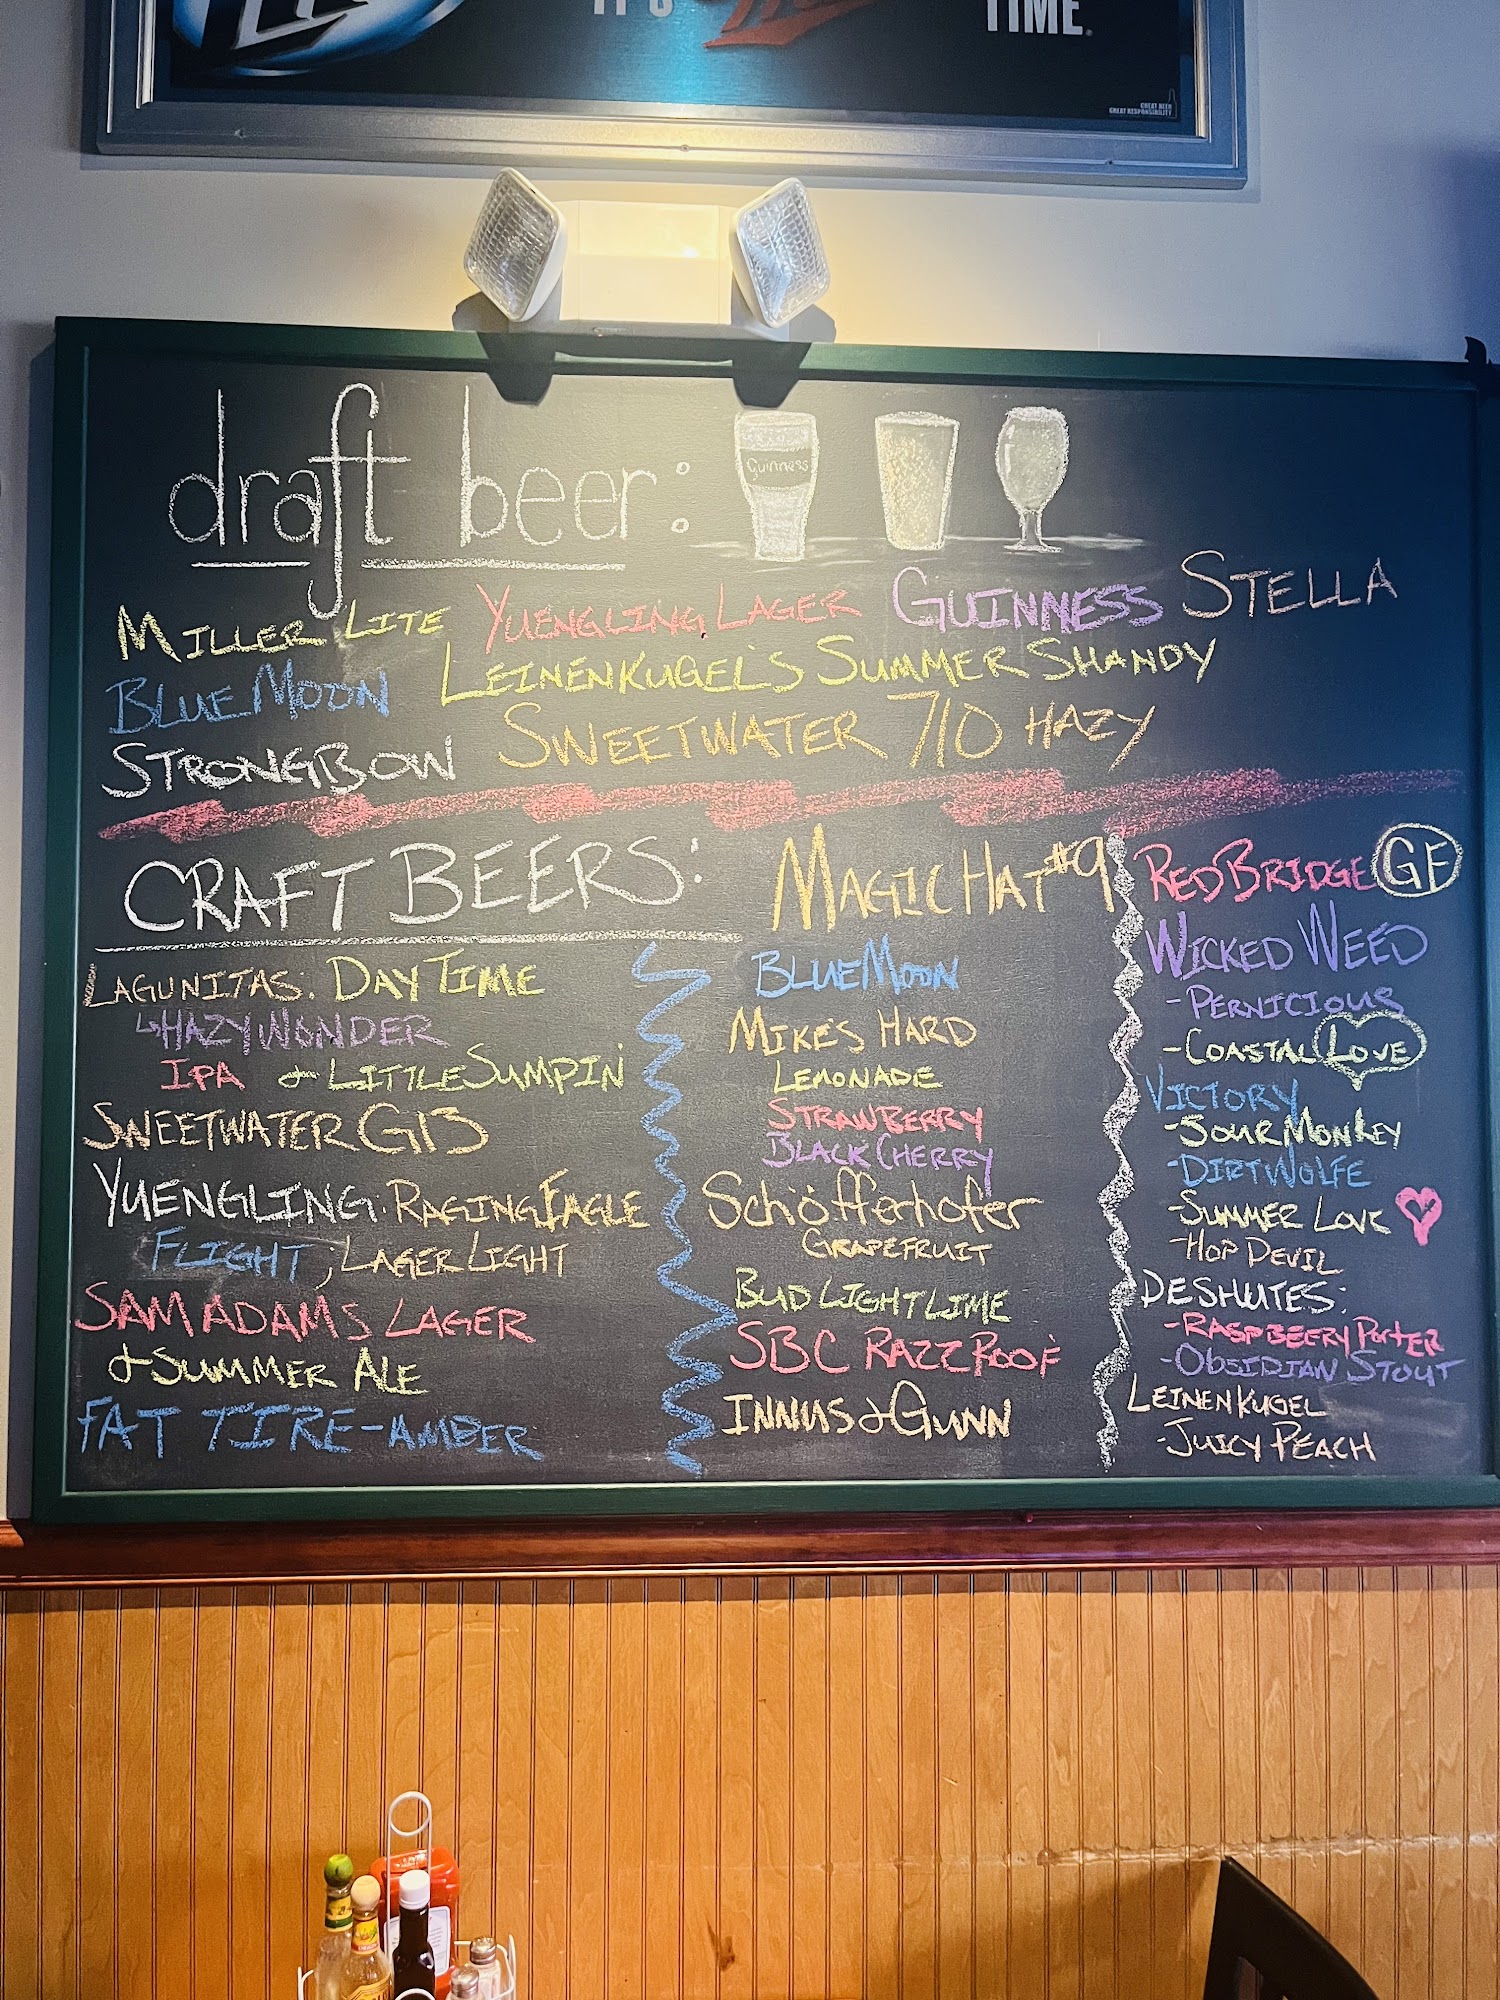 IT'S
TIME.
GREAT BEER
GREAT RESPONSIBILITY
draft beer:
Guinness
MILLER LITE YUENGLING LAGER GUINNESS STELLA
BLUE MOON LEINENKUGEL'S SUMMER SHANDY
STRONGBOW SWEETWATER 710 HAZY
CRAFT BEERS:
LAGUNITAS: DAYTIME
↳HAZY WONDER
IPA & LITTLE SUMPIN'
SWEETWATER G13
YUENGLING: RAGING EAGLE
FLIGHT ; LAGER LIGHT
SAM ADAMS LAGER
& SUMMER ALE
FAT TIRE-AMBER
MAGIC HAT #9
BLUE MOON
MIKE'S HARD
LEMONADE
STRAWBERRY
BLACK CHERRY
Schöfferhofer
GRAPEFRUIT
BUD LIGHT LIME
SBC RAZZ ROOF
INNUS & GUNN
REDBRIDGE GF
WICKED WEED
-PERNICIOUS
-COASTAL LOVE
VICTORY
-SOUR MONKEY
-DIRTWOLFE
-SUMMER LOVE
-HOP DEVIL
DESHUTES:
-RASPBEERY PORTER
-OBSIDIAN STOUT
LEINENKUGEL
-JUICY PEACH